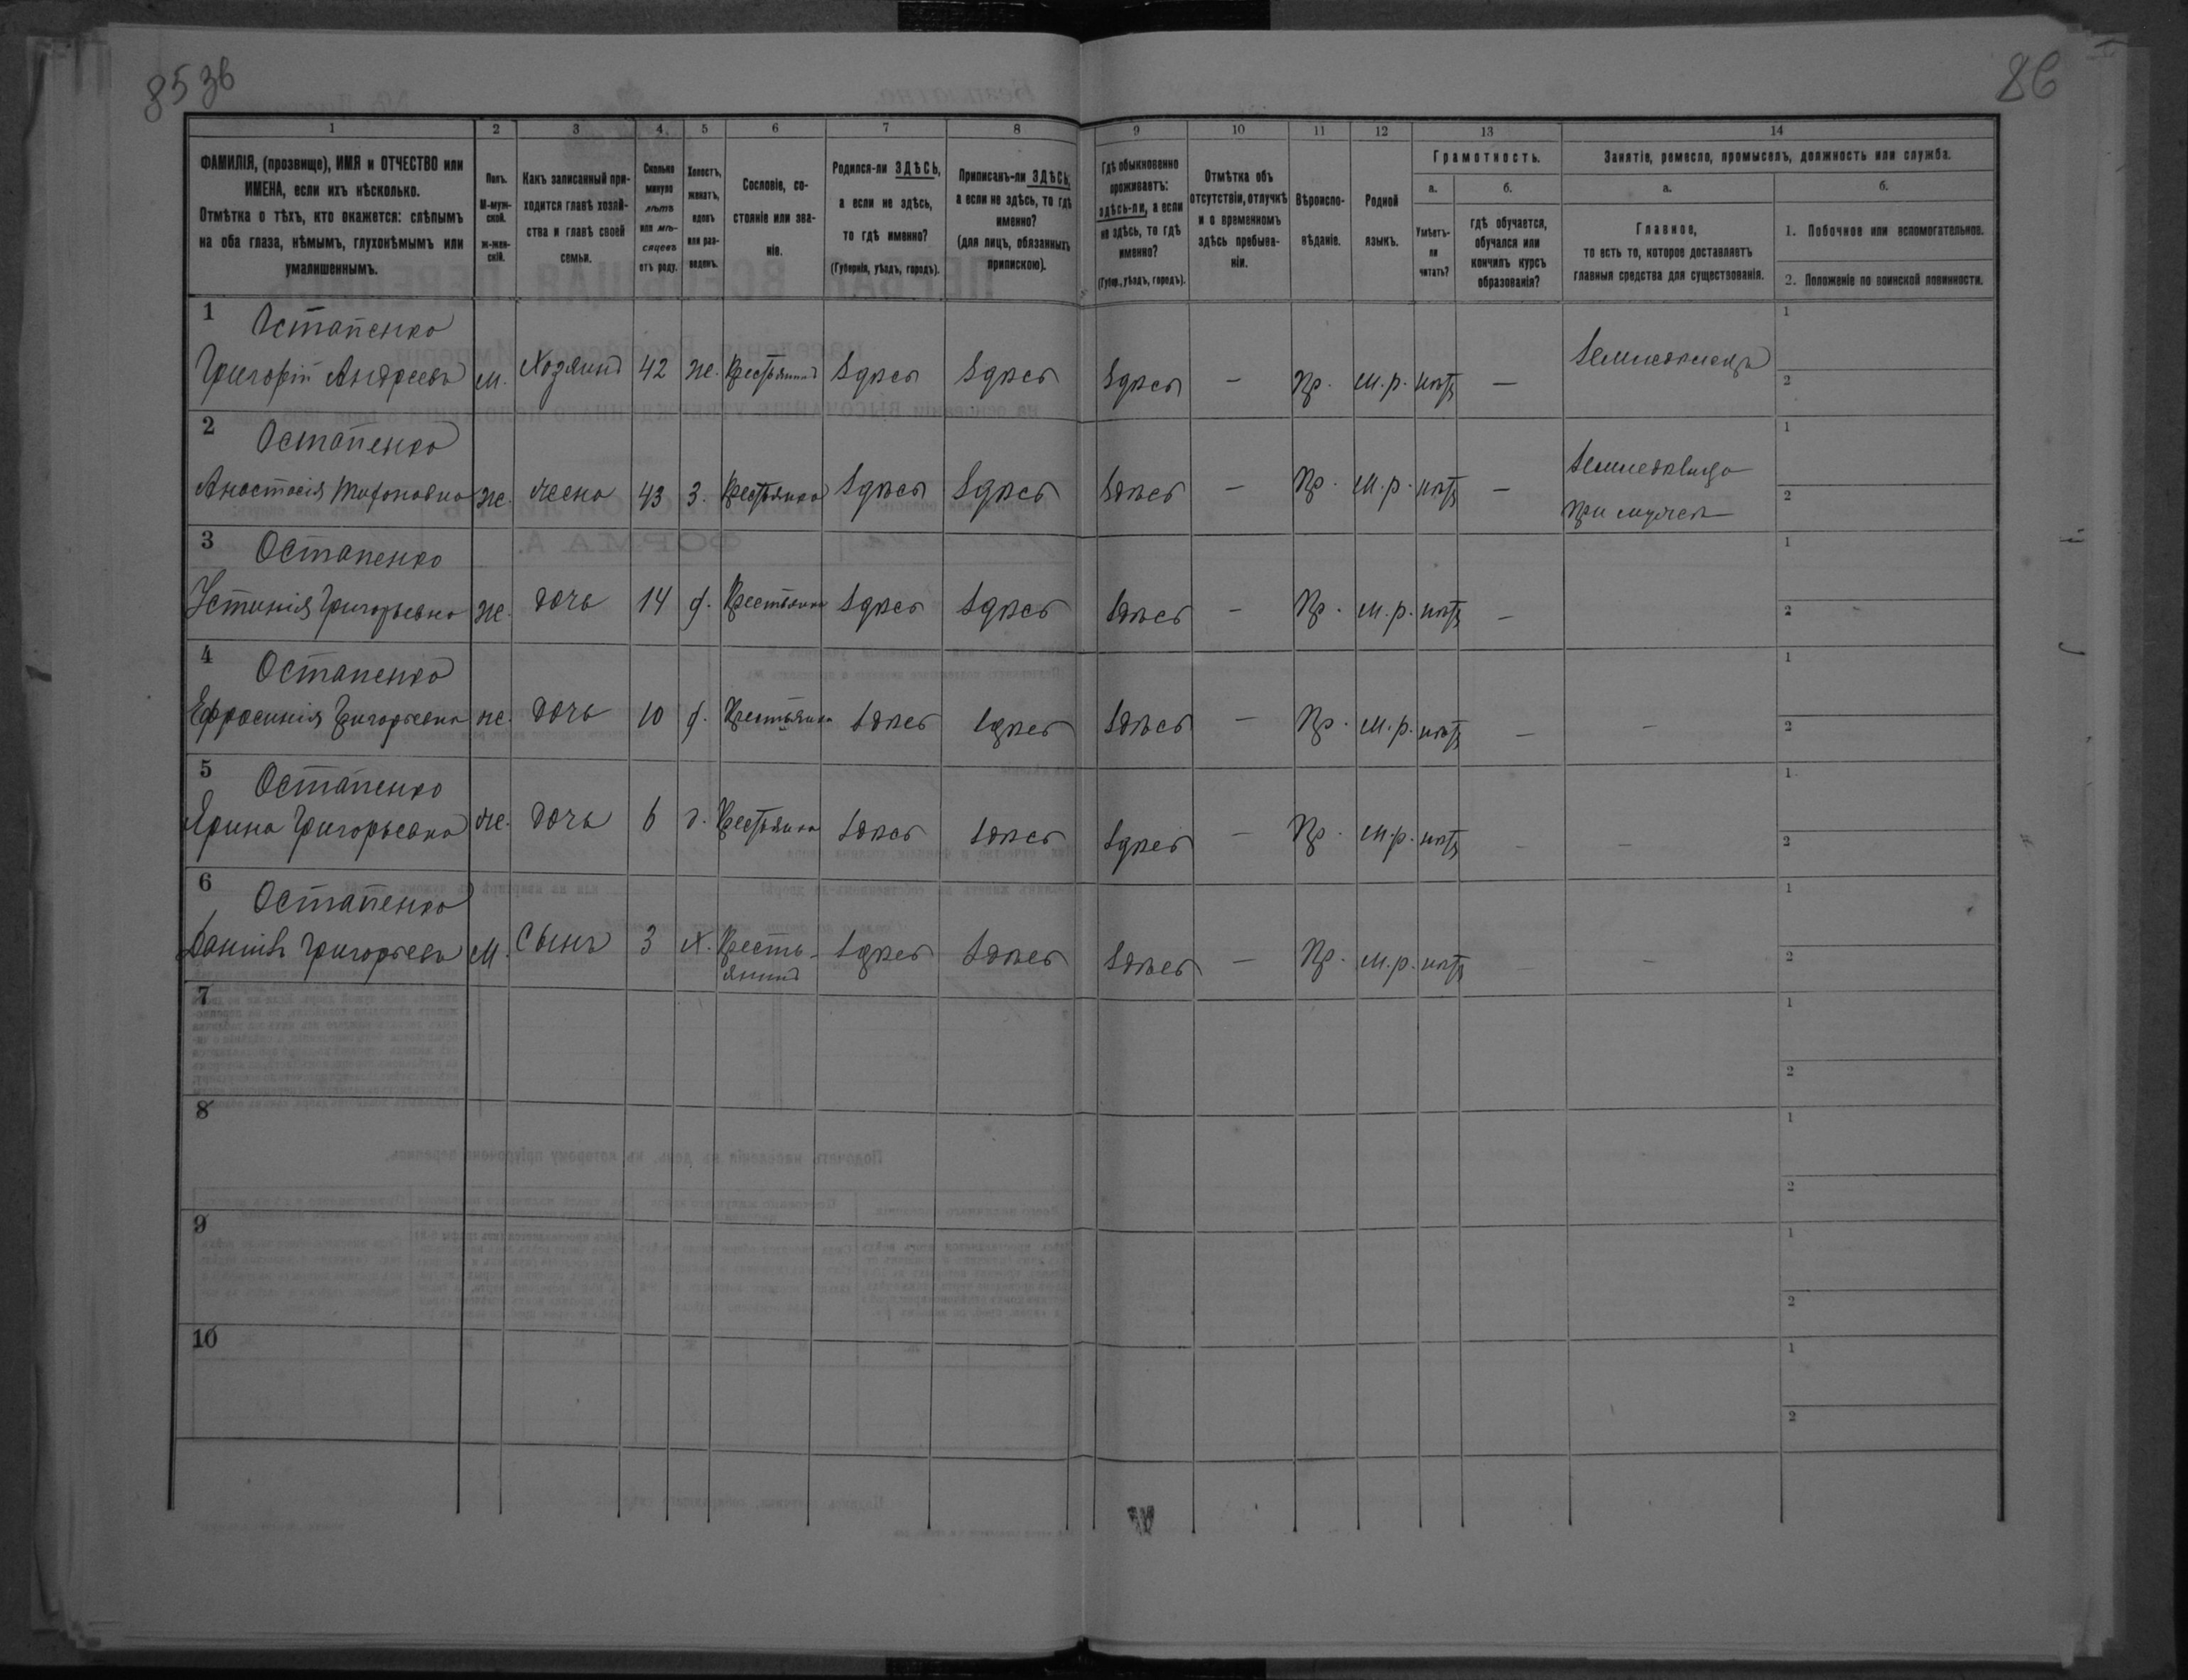 85 зб
86
1 2 3 4 5 6 7 8 9 10 11 12 13 14
ФАМИЛІЯ, (прозвище), ИМЯ и ОТЧЕСТВО или
ИМЕНА, если ихъ нѣсколько.
Отмѣтка о тѣхъ, кто окажется: слѣпымъ
на оба глаза, нѣмымъ, глухонѣмымъ или
умалишеннымъ.
Полъ.
М-муж-
ской.
ж-жен-
скій.
Какъ записанный при-
ходится главѣ хозяй-
ства и главѣ своей
семьи.
Сколько
минуло
лѣтъ
или мѣ-
сяцевъ
отъ роду.
Холостъ,
женатъ,
вдовъ
или раз-
веденъ.
Сословіе, со-
стояніе или зва-
ніе.
Родился-ли ЗДѢСЬ,
а если не здѣсь,
то гдѣ именно?
(Губернія, уѣздъ, городъ).
Приписанъ-ли ЗДѢСЬ,
а если не здѣсь, то гдѣ
именно?
(для лицъ, обязанныхъ
припискою).
Гдѣ обыкновенно
проживаетъ:
здѣсь-ли, а если
не здѣсь, то гдѣ
именно?
(Губер., уѣздъ, городъ).
Отмѣтка объ
отсутствіи, отлучкѣ
и о временномъ
здѣсь пребыва-
ніи.
Вѣроиспо-
вѣданіе.
Родной
языкъ.
Грамотность.
а.
Умѣетъ-
ли
читать?
б.
гдѣ обучается,
обучался или
кончилъ курсъ
образованія?
Занятіе, ремесло, промыселъ, должность или служба.
а.
Главное,
то есть то, которое доставляетъ
главныя средства для существованія.
б.
1. Побочное или вспомогательное.
2. Положеніе по воинской повинности.
1 Остапенко
Григорій Андреевъ м. Хозяинъ 42 ж. Крестьянинъ Здѣсь Здѣсь Здѣсь — Пр. м.р. нѣтъ — Земледѣлецъ
1
2
2 Остапенко
Анастасія Митоновна ж. жена 43 з. Крестьянка Здѣсь Здѣсь Здѣсь — Пр. м.р. нѣтъ — Земледѣлица
при мужѣ
1
2
3 Остапенко
Устинія Григорьевна ж. дочь 14 д. Крестьянка Здѣсь Здѣсь Здѣсь — Пр. м.р. нѣтъ —
1
2
4 Остапенко
Ефросинія Григорьевна ж. дочь 10 д. Крестьянка Здѣсь Здѣсь Здѣсь — Пр. м.р. нѣтъ — —
1
2
5 Остапенко
Ярина Григорьевна ж. дочь 6 д. Крестьянка Здѣсь Здѣсь Здѣсь — Пр. м.р. нѣтъ — —
1
2
6 Остапенко
Даніилъ Григорьевъ м. Сынъ 3 х. Кресть-
янинъ Здѣсь Здѣсь Здѣсь — Пр. м.р. нѣтъ — —
1
2
7
1
2
8
1
2
9
1
2
10
1
2